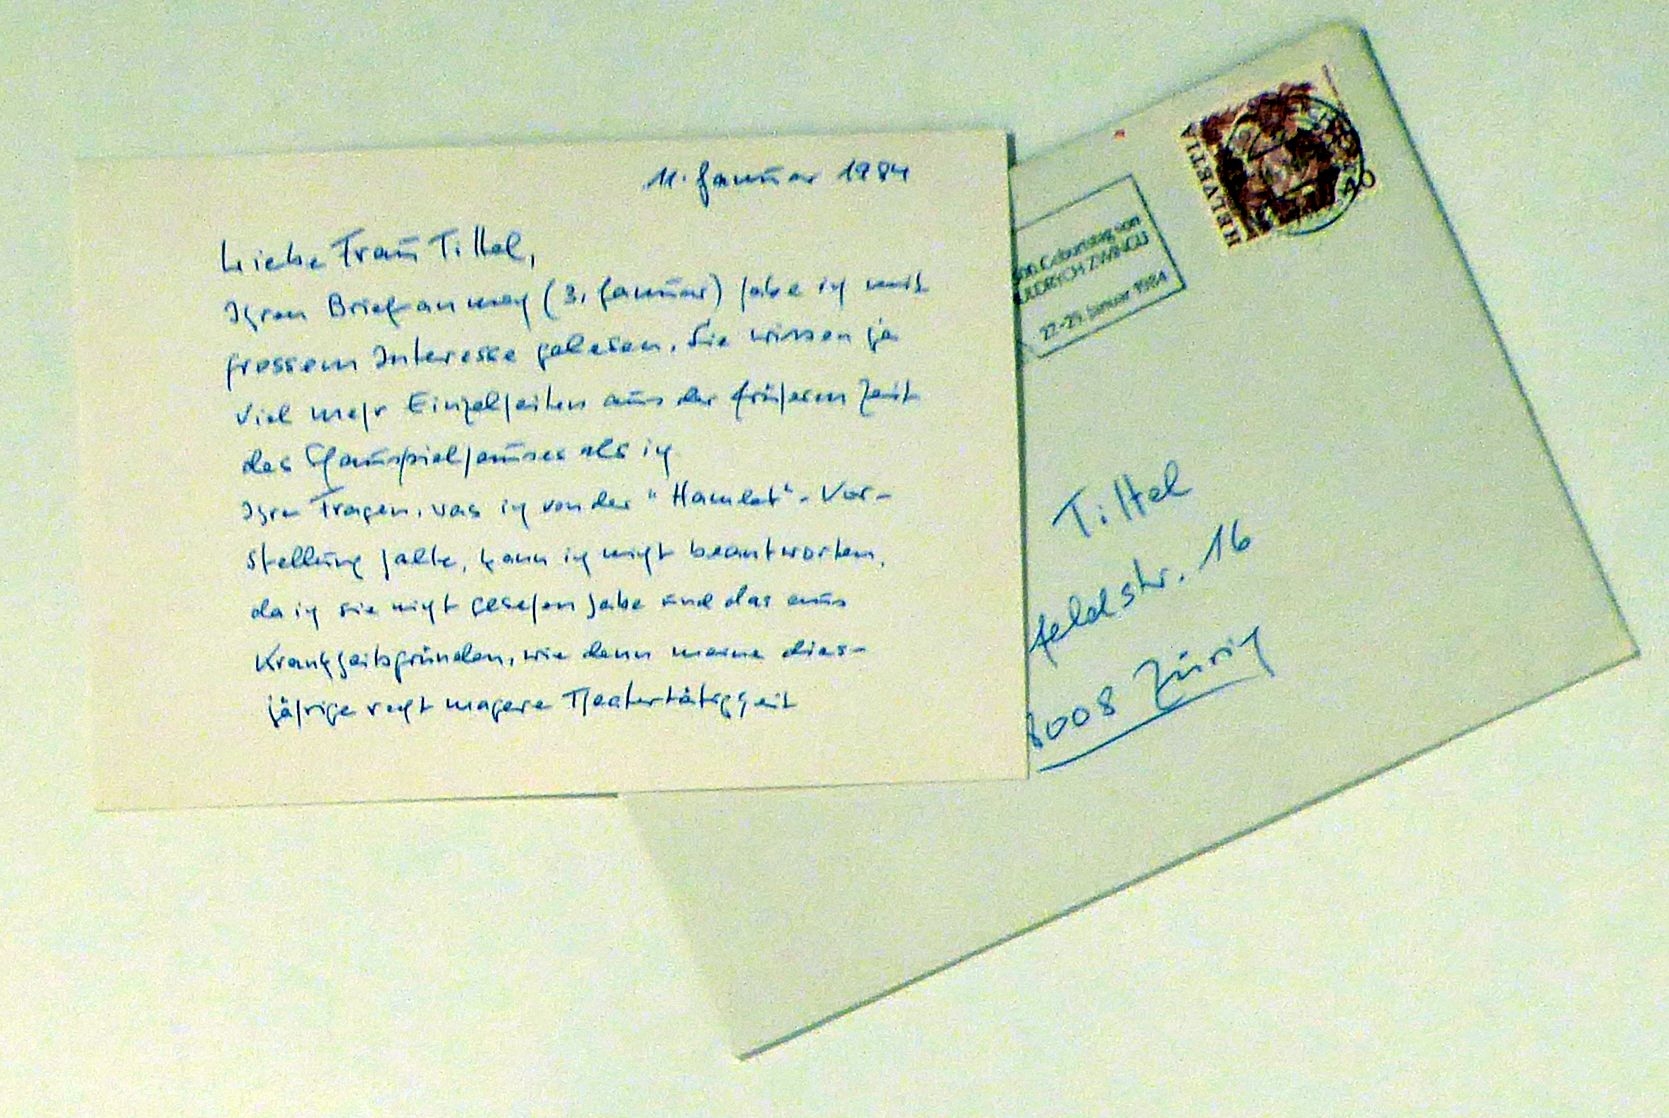 11. Januar 1984
Liebe Frau Tittel,
Ihren Brief an mich (3. Januar) habe ich mit
grossem Interesse gelesen. Sie wissen ja
viel mehr Einzelheiten aus der früheren Zeit
des Schauspielhauses als ich
Ihre Fragen, was ich von der "Hamlet"-Vor-
stellung halte, kann ich nicht beantworten,
da ich sie nicht gesehen habe und das aus
Krankheitsgründen, wie denn meine dies-
jährige recht magere Theatertätigkeit
HELVETIA
40
500. Geburtstag von
ULDRYCH ZWINGLI
22.-25. Januar 1984
Tittel
feldstr. 16
8008 Zürich